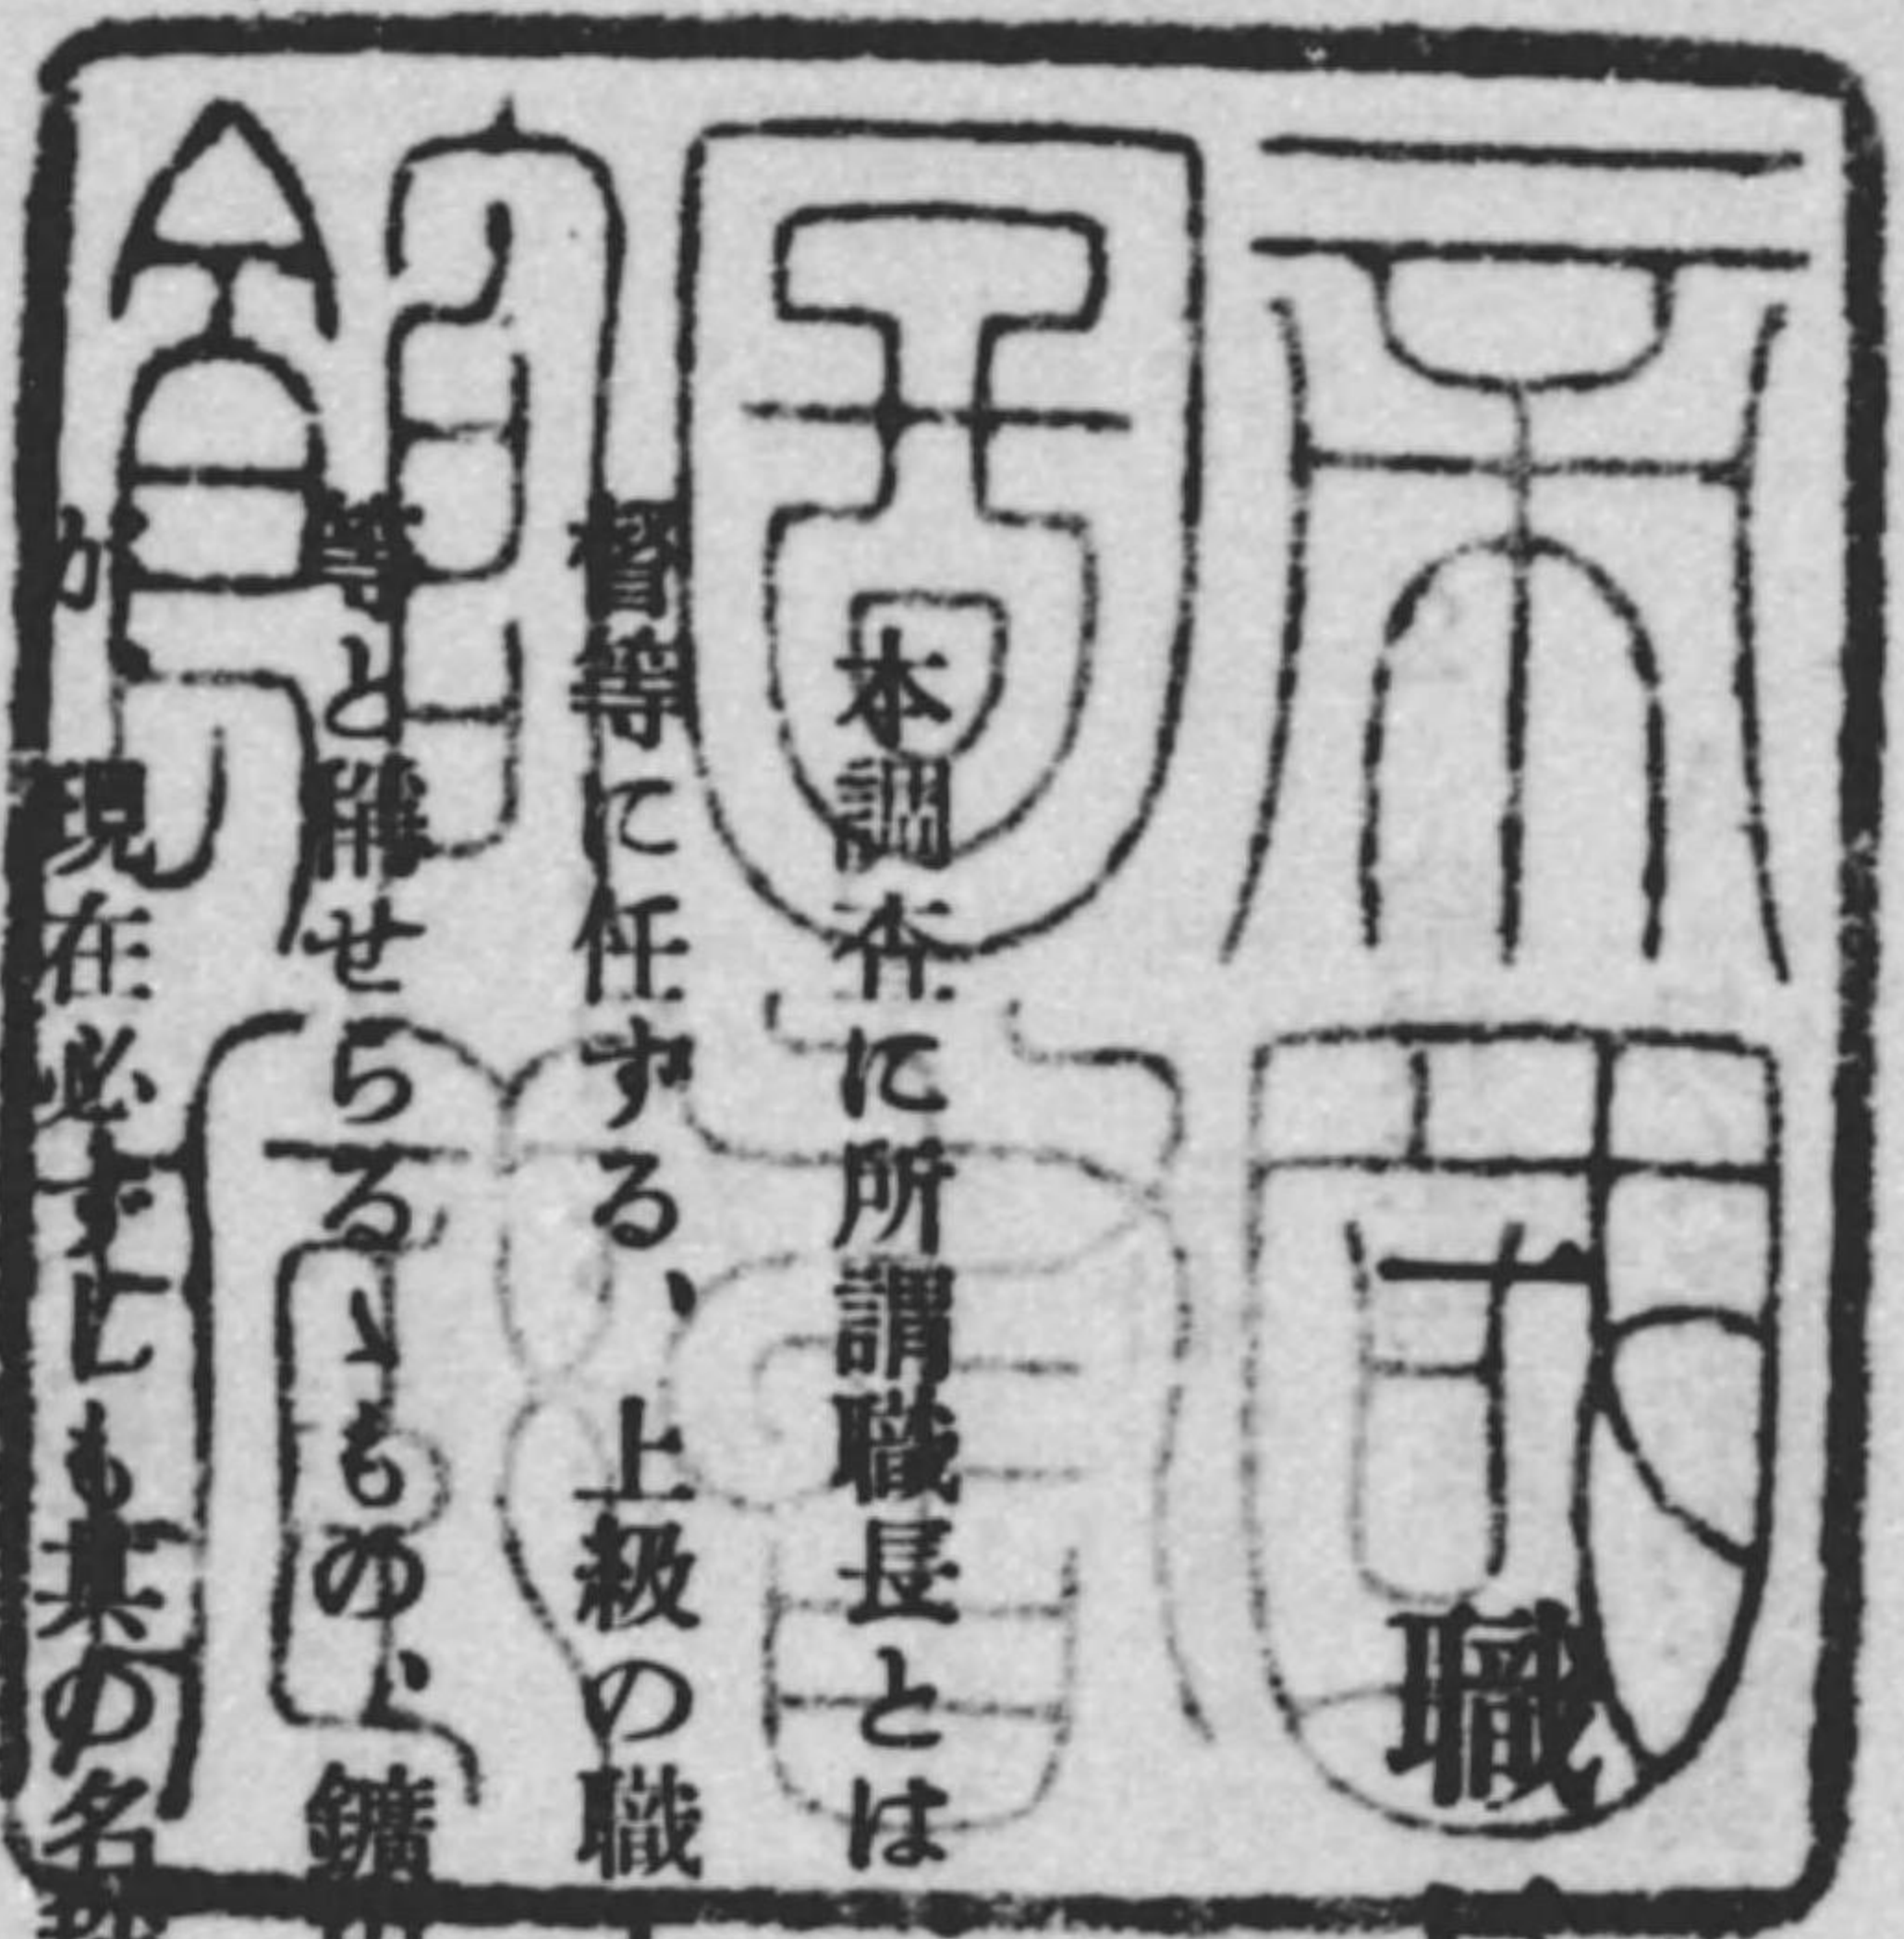 帝國圖書館藏
職
本調査に所謂職長とは
督等て任ずる、上級の職
等と稱せらるゝもの、鑛
が 現在必ずしも其の名称